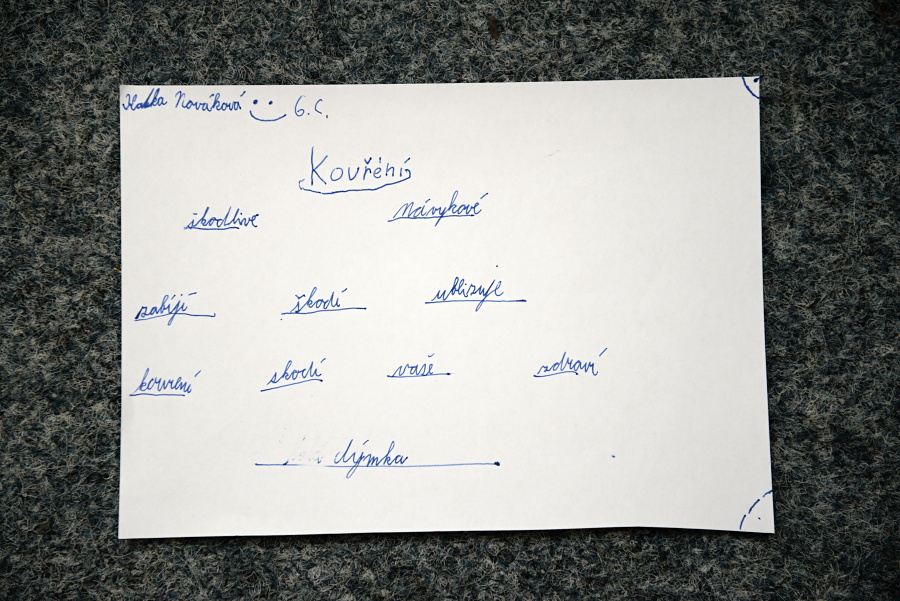 Nováková 6.C.
Kouření
škodlivé návykové
zabíjí škodí ubližuje
kouření skodí vaše zdraví
dýmka